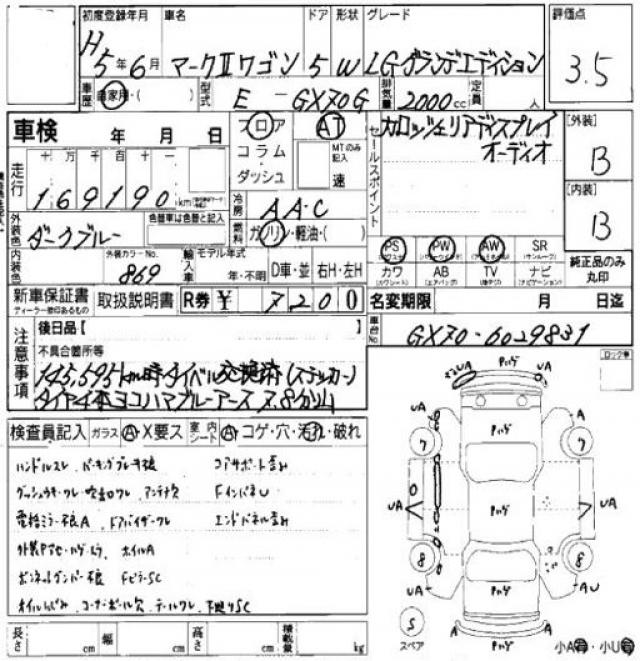 初度登録年月 車名 ドア 形状 グレード 評価点
H5年6月 マークⅡワゴン 5 W LGグランデエディション 3.5
車歴 自家用・( ) 型式 E-GX70G 排気量 2000cc 定員 人
車検 年 月 日 フロア AT セールスポイント カロッツェリアディスプレイ [外装]
コラム MTのみ記入 オーディオ B
走行 十万千百十一 ダッシュ 速
169190km 冷房 AAC [内装]
外装色 色替車は色替と記入 燃料 ガソリン・軽油・( ) B
ダークブルー PS PW AW SR
内装色 外装カラーNo. 869 輸入車 モデル年式 カワ AB TV ナビ 純正品のみ丸印
年・不明 D車・並 右H・左H
新車保証書 取扱説明書 R券 ¥ 7200 名変期限 月 日迄
ディーラー捺印あるもの
注意事項 後日品【 】 車台No. GX70-6029831
不具合箇所等 ロック車
145,595km時タイベル交換済(ステッカー)
タイヤ4本ヨコハマブルーアース 7.8分山
検査員記入 ガラス A・X要ス 室内シート A・コゲ・穴・汚れ・破れ
ハンドルスレ パーキングブレーキ不良 コアサポート歪み
ダッシュウキ・ワレ・吹出口ワレ アンテナ欠 FインパネU
電格ミラー不良A ドアバイザーワレ エンドパネル歪み
ホイルA
ボンネットダンパー不良
コーナーポール欠 テールワレ 下廻りSC
長さ cm 幅 cm 高さ cm 積載量 kg
UA UA
UA A
7 7
UA UA
8 8
UA AU
S A A
スペア 小A・小U